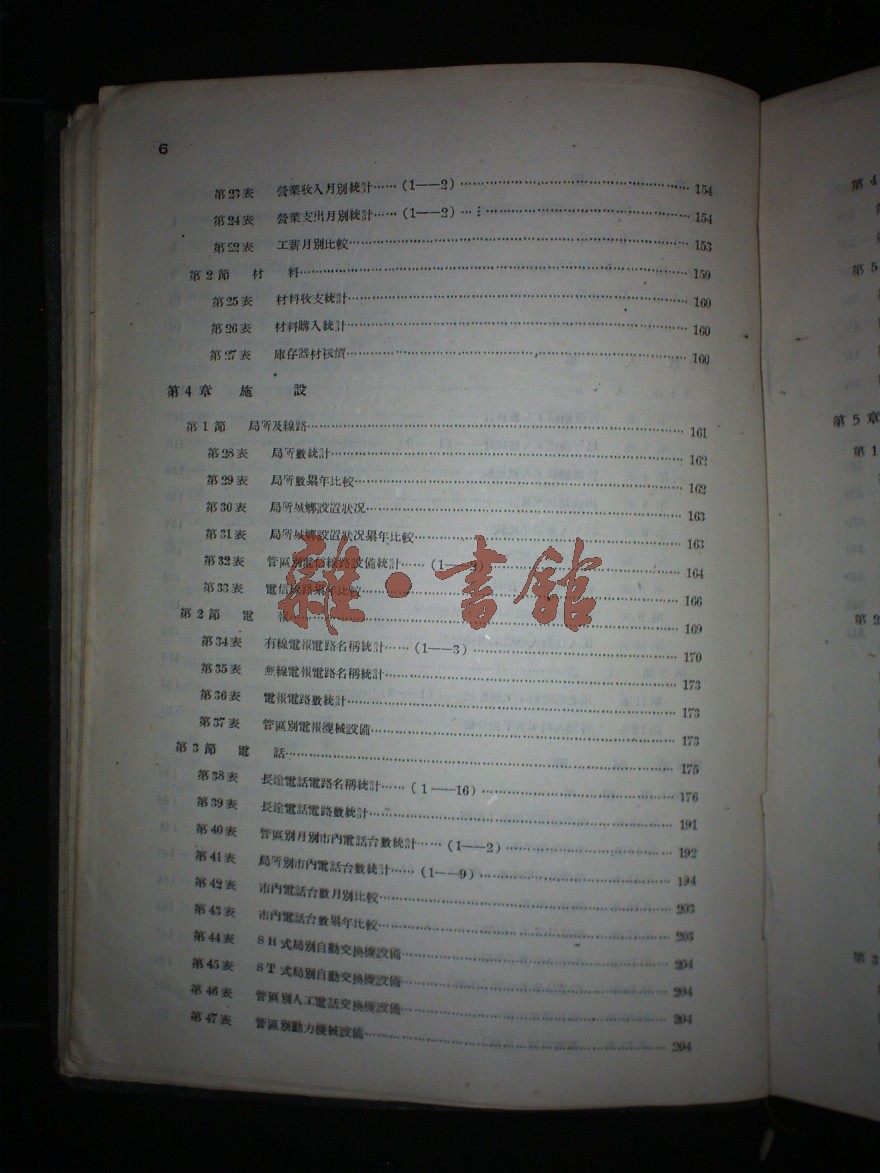 6
第23表 營業收入月別統計……(1——2)……154
第24表 營業支出月別統計……(1——2)……154
第22表 工薪月別比較……153
第2節 材 料……159
第25表 材料收支統計……160
第26表 材料購入統計……160
第27表 庫存器材 價……160
第4章 施 設
第1節 局所及線路……161
第28表 局所數統計……162
第29表 局所數累年比較……162
第30表 局所城鄉設置狀况……163
第31表 局所城鄉設置狀况累年比較……163
第32表 管區別電信線路設備統計……(1——9)……164
第33表 電信線路累年比較……166
第2節 電 報……169
第34表 有線電報電路名稱統計……(1——3)……170
第35表 無線電報電路名稱統計……173
第36表 電報電路數統計……173
第37表 管區別電報機械設備……173
第3節 電 話……175
第38表 長途電話電路名稱統計……(1——16)……176
第39表 長途電話電路數統計……191
第40表 管區別月別市內電話台數統計……(1——2)……192
第41表 局所別市內電話台數統計……(1——9)……194
第42表 市內電話台數月別比較……203
第43表 市內電話台數累年比較……203
第44表 SH式局別自動交換機設備……204
第45表 ST式局別自動交換機設備……204
第46表 管區別人工電話交換機設備……204
第47表 管區別動力機械設備……204
雜·書館
第4
第5
第5章
第1
第2
第3